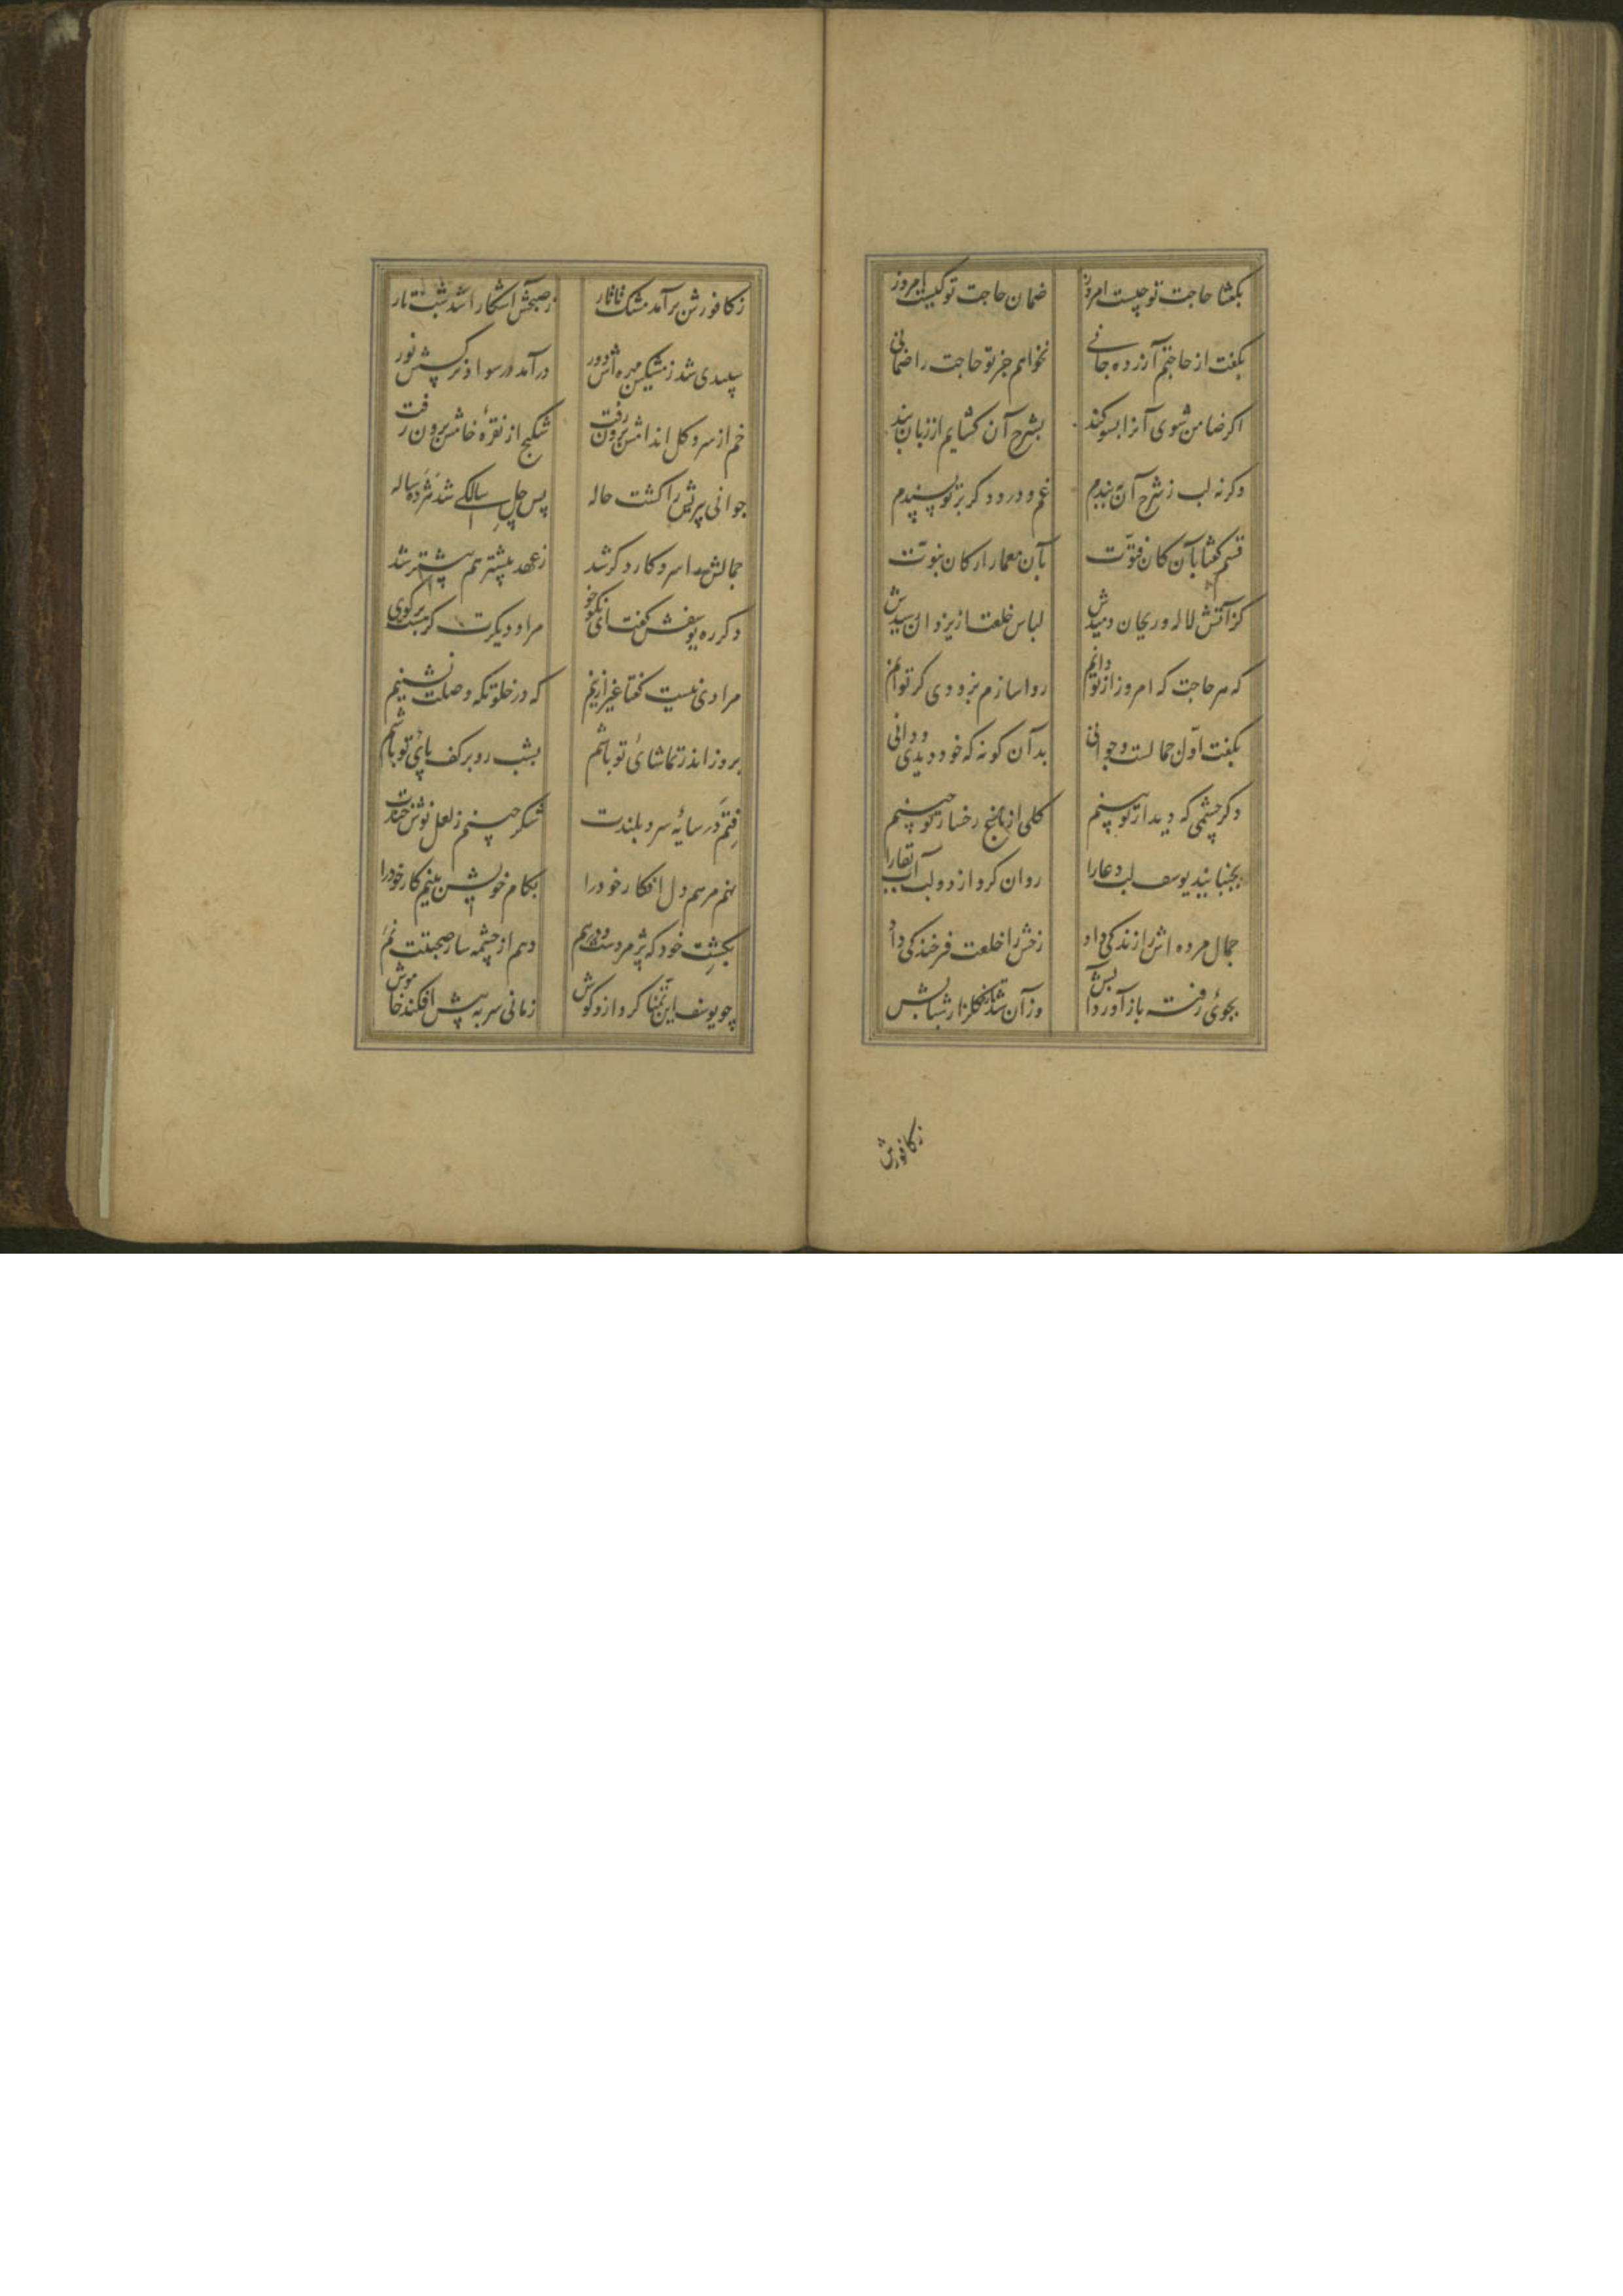 بگفتا حاجت تو چیست امروز ضمان حاجت تو کیست امروز
بگفت از حاجتم آزرده جانی نخواهم جز تو حاجت را ضمانی
اکر ضامن شوی آنرا بسوکند بشرح آن کشایم از زبان بند
وکرنه لب ز شرح آن ببندم غم و درد دکر بر تو پسندم
قسم گفتا بآن کان فتوّت بآن معمار ارکان نبوّت
کز آتش لاله و ریحان دمیدش لباس خلعت از یزدان رسیدش
که هر حاجت که امروز از تو دانم روا سازم بزودی کر توانم
بگفت اوّل جمالست و جوانی بدآن کونه که خود دیدی و دانی
دکر چشمی که دیدار تو بینم کلی از باغ رخسار تو چینم
بجنبانید یوسف لب دعا را روان کرد از دو لب آب بقا را
جمال مرده اش را زندکی داد رخش را خلعت فرخندکی داد
بجوئ رفته باز آورد آبش وز آن شد تازه کلزار شبابش
زکافورش
زکافورش برآمد مشک تاتار ز صبحش آشکارا شد شب تار
سپیدی شد ز مشکین مهره اش دور درآمد در سواد نرکسش نور
خم از سرو کل اندامش برون رفت شکنج از نقرهٔ خامش برون رفت
جوانی پیریش را کشت حاله پس از چل سالکی شد هژده ساله
جمالش را سر و کار دکر شد ز عهد پیشتر هم پیشتر شد
دکر ره یوسفش گفت ای نکو خو مراد دیکرت کر هست برکوی
مرادی نیست گفتا غیر ازینم که در خلوتکه وصلت نشینم
بروز اندر تماشائ تو باشم بشب رو بر کف پائ تو باشم
فتم در سایهٔ سرو بلندت شکر چینم ز لعل نوش خندت
نهم مرهم دل افکار خود را بکام خویشتن بینم کار خود را
بکشت خود که پژمردست و درهم دهم از چشمه سار صحبتت نم
چو یوسف این تمنّا کرد ازو کوش زمانی سر به پیش افکند خاموش